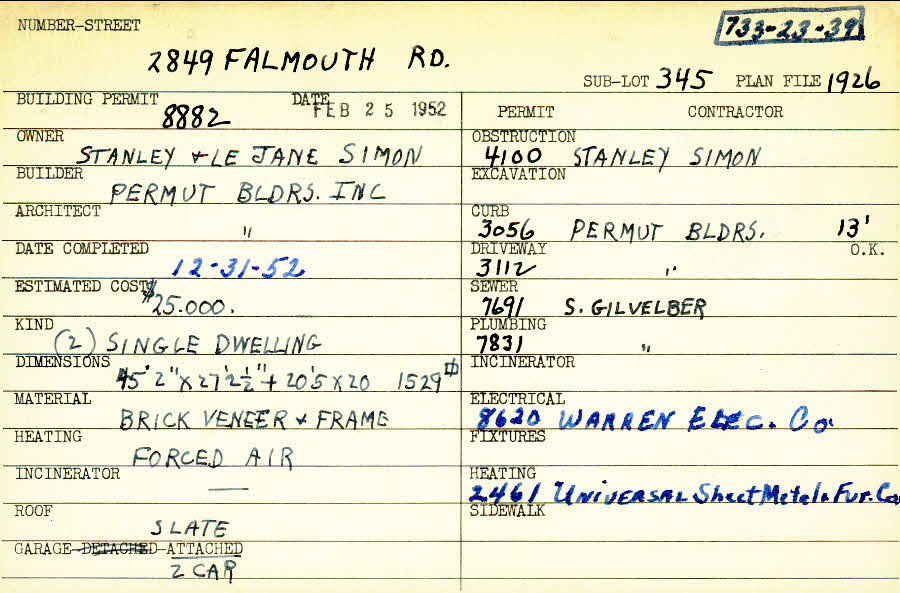 NUMBER-STREET
733-23-39
2849 FALMOUTH RD.
SUB-LOT 345 PLAN FILE 1926
BUILDING PERMIT 8882 DATE FEB 25 1952
OWNER
STANLEY + LE JANE SIMON
BUILDER
PERMUT BLDRS. INC
ARCHITECT
"
DATE COMPLETED
12-31-52
ESTIMATED COST
$25.000.
KIND
(2) SINGLE DWELLING
DIMENSIONS
45' 2" X 27' 2½" + 20'5 X 20 1529 #
MATERIAL
BRICK VENEER + FRAME
HEATING
FORCED AIR
INCINERATOR
—
ROOF
SLATE
GARAGE-DETACHED-ATTACHED
2 CAR
PERMIT CONTRACTOR
OBSTRUCTION
4100 STANLEY SIMON
EXCAVATION
CURB
3056 PERMUT BLDRS. 13'
DRIVEWAY O.K.
3112 "
SEWER
7691 S. GILVELBER
PLUMBING
7831 "
INCINERATOR
ELECTRICAL
8620 WARREN ELEC. Co.
FIXTURES
HEATING
2461 UNIVERSAL Sheet Metal & Fur. Co
SIDEWALK